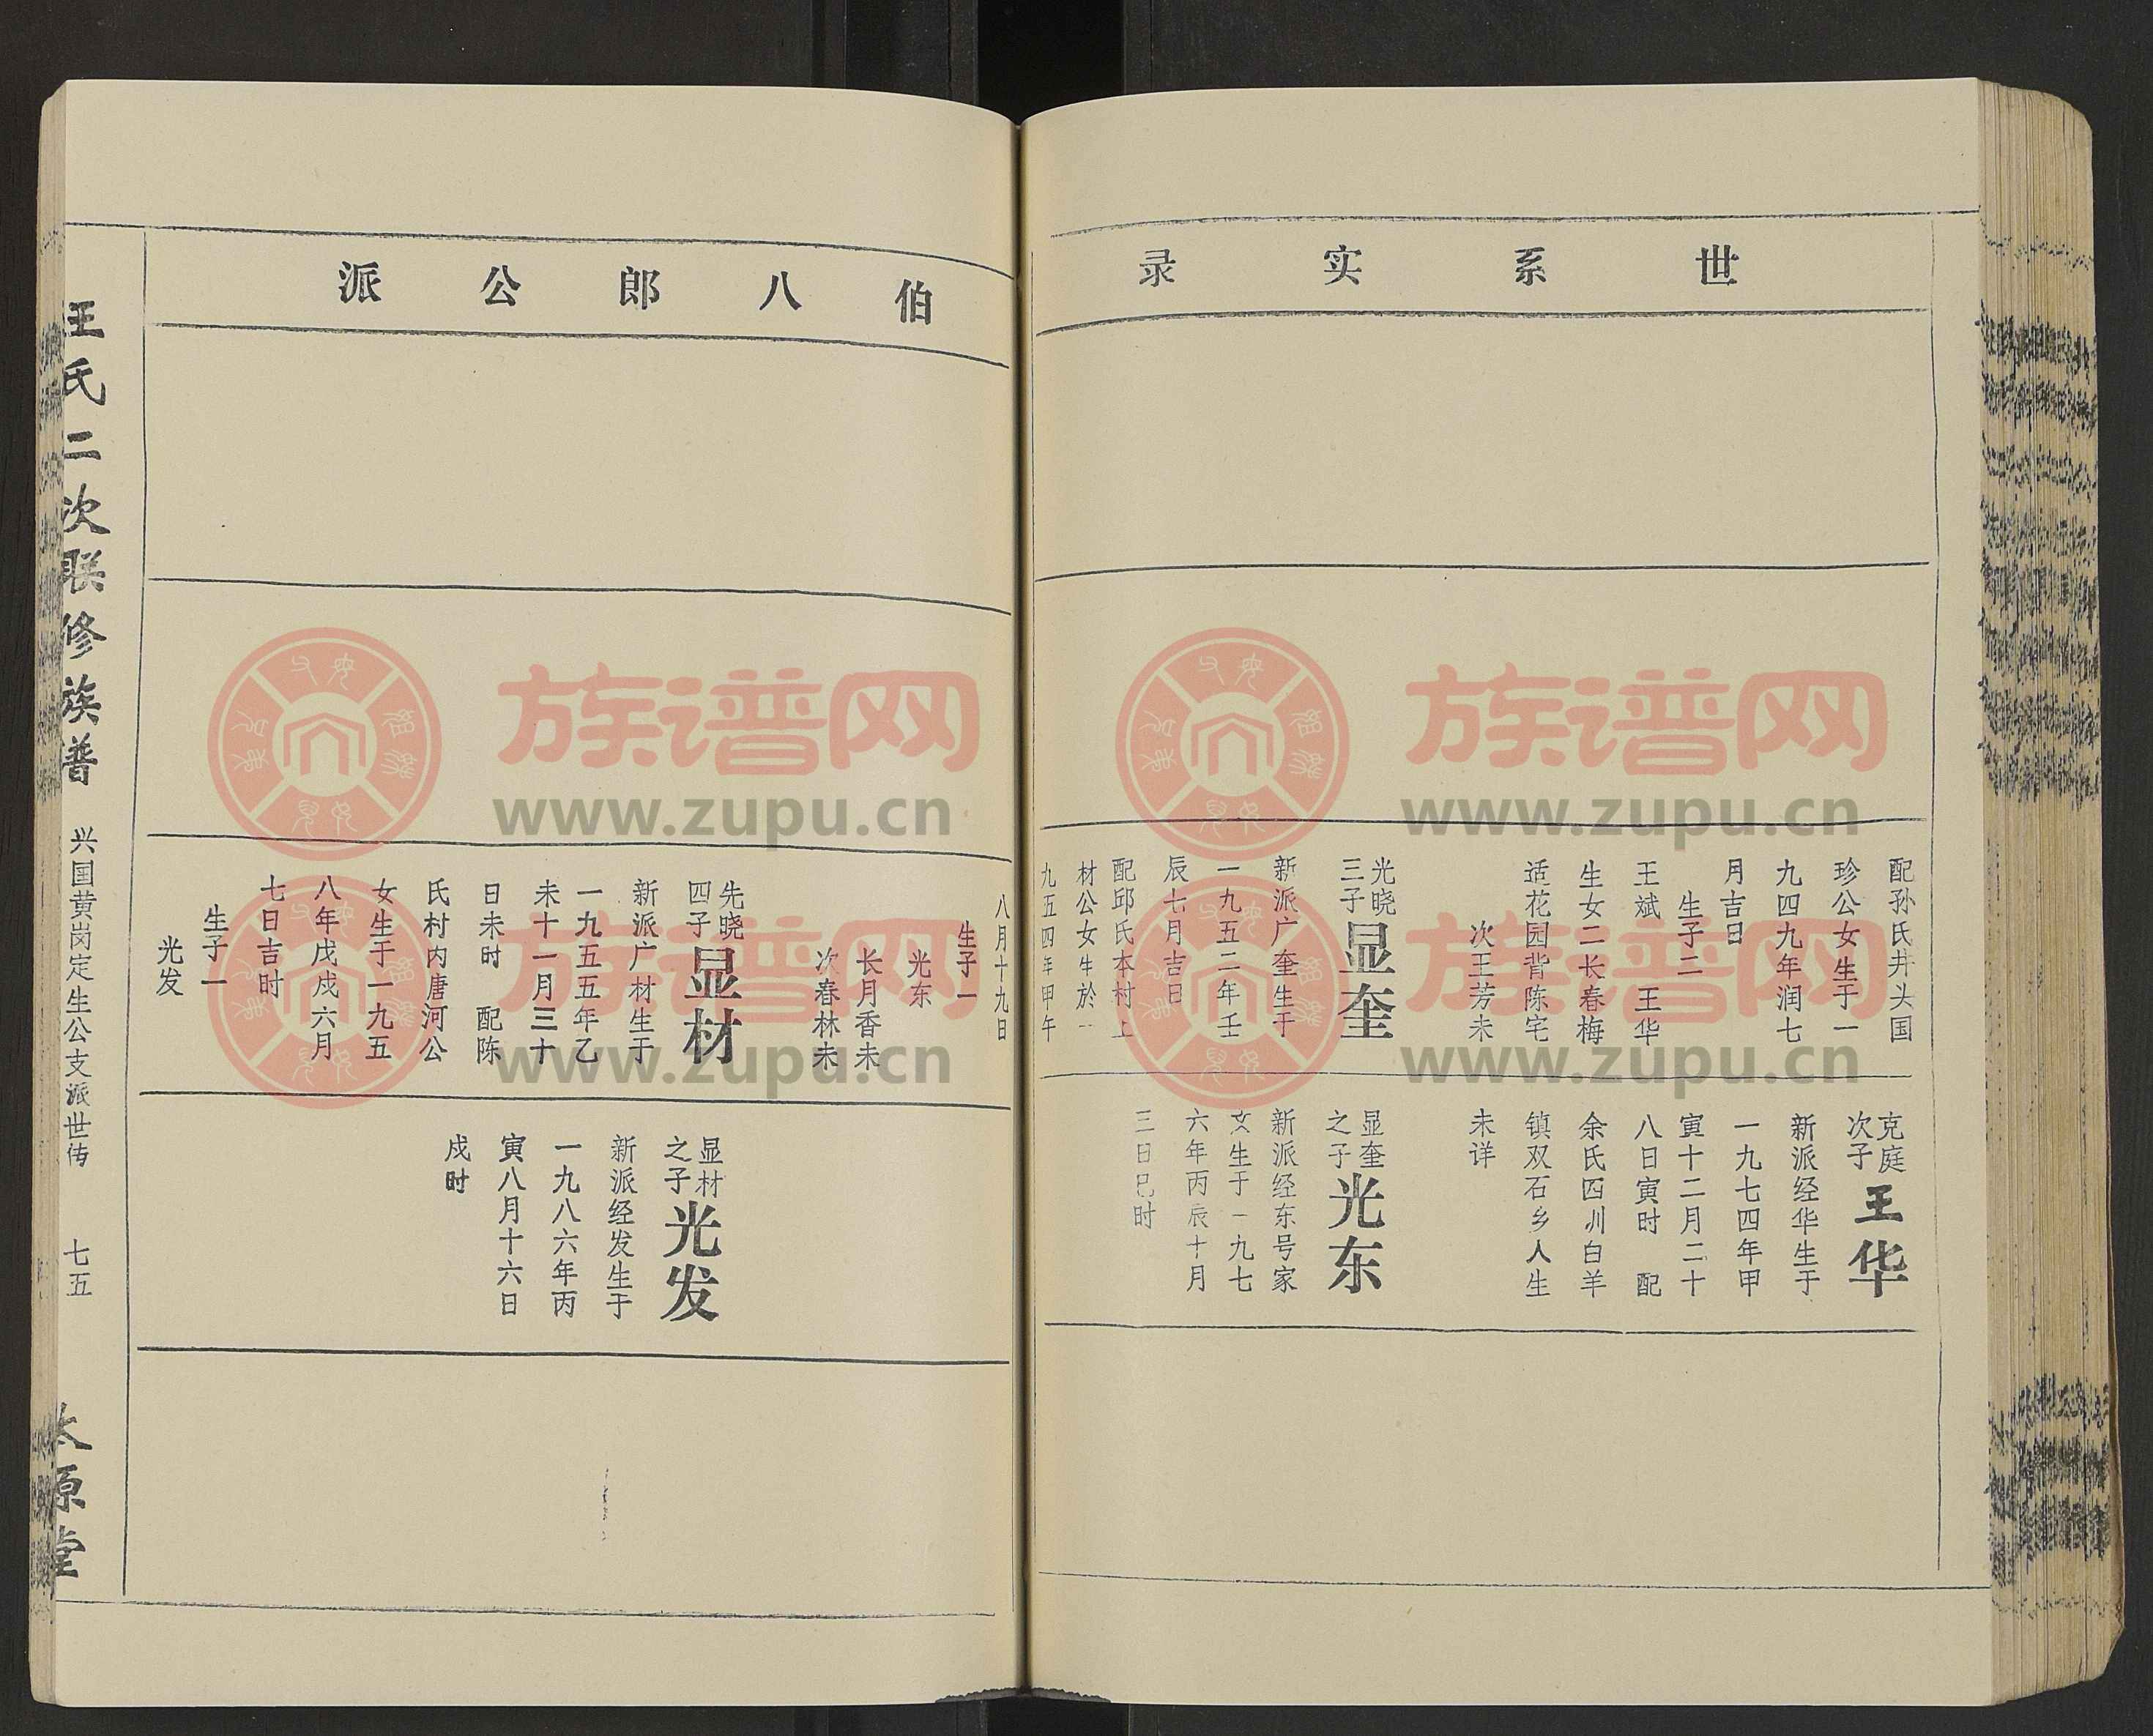 世系实录
配孙氏井头国
珍公女生于一
九四九年润七
月吉日
生子二
王斌 王华
生女二长春梅
适花园背陈宅
次王芳未
光晓
三子
显奎
新派广奎生于
一九五二年壬
辰七月吉日
配邱氏本村上
材公女生於一
九五四年甲午
克庭
次子
王华
新派经华生于
一九七四年甲
寅十二月二十
八日寅时 配
余氏四川白羊
镇双石乡人生
未详
显奎
之子
光东
新派经东号家
文生于一九七
六年丙辰十月
三日巳时
伯八郎公派
八月十九日
生子一
光东
长月香未
次春林未
先晓
四子
显材
新派广材生于
一九五五年乙
未十一月三十
日未时 配陈
氏村内唐河公
女生于一九五
八年戊戌六月
七日吉时
生子一
光发
显材
之子
光发
新派经发生于
一九八六年丙
寅八月十六日
戌时
王氏二次联修族普
兴国黄岗定生公支派世传
七五
太原堂
族谱网
www.zupu.cn
族谱网
www.zupu.cn
族谱网
www.zupu.cn
族谱网
www.zupu.cn